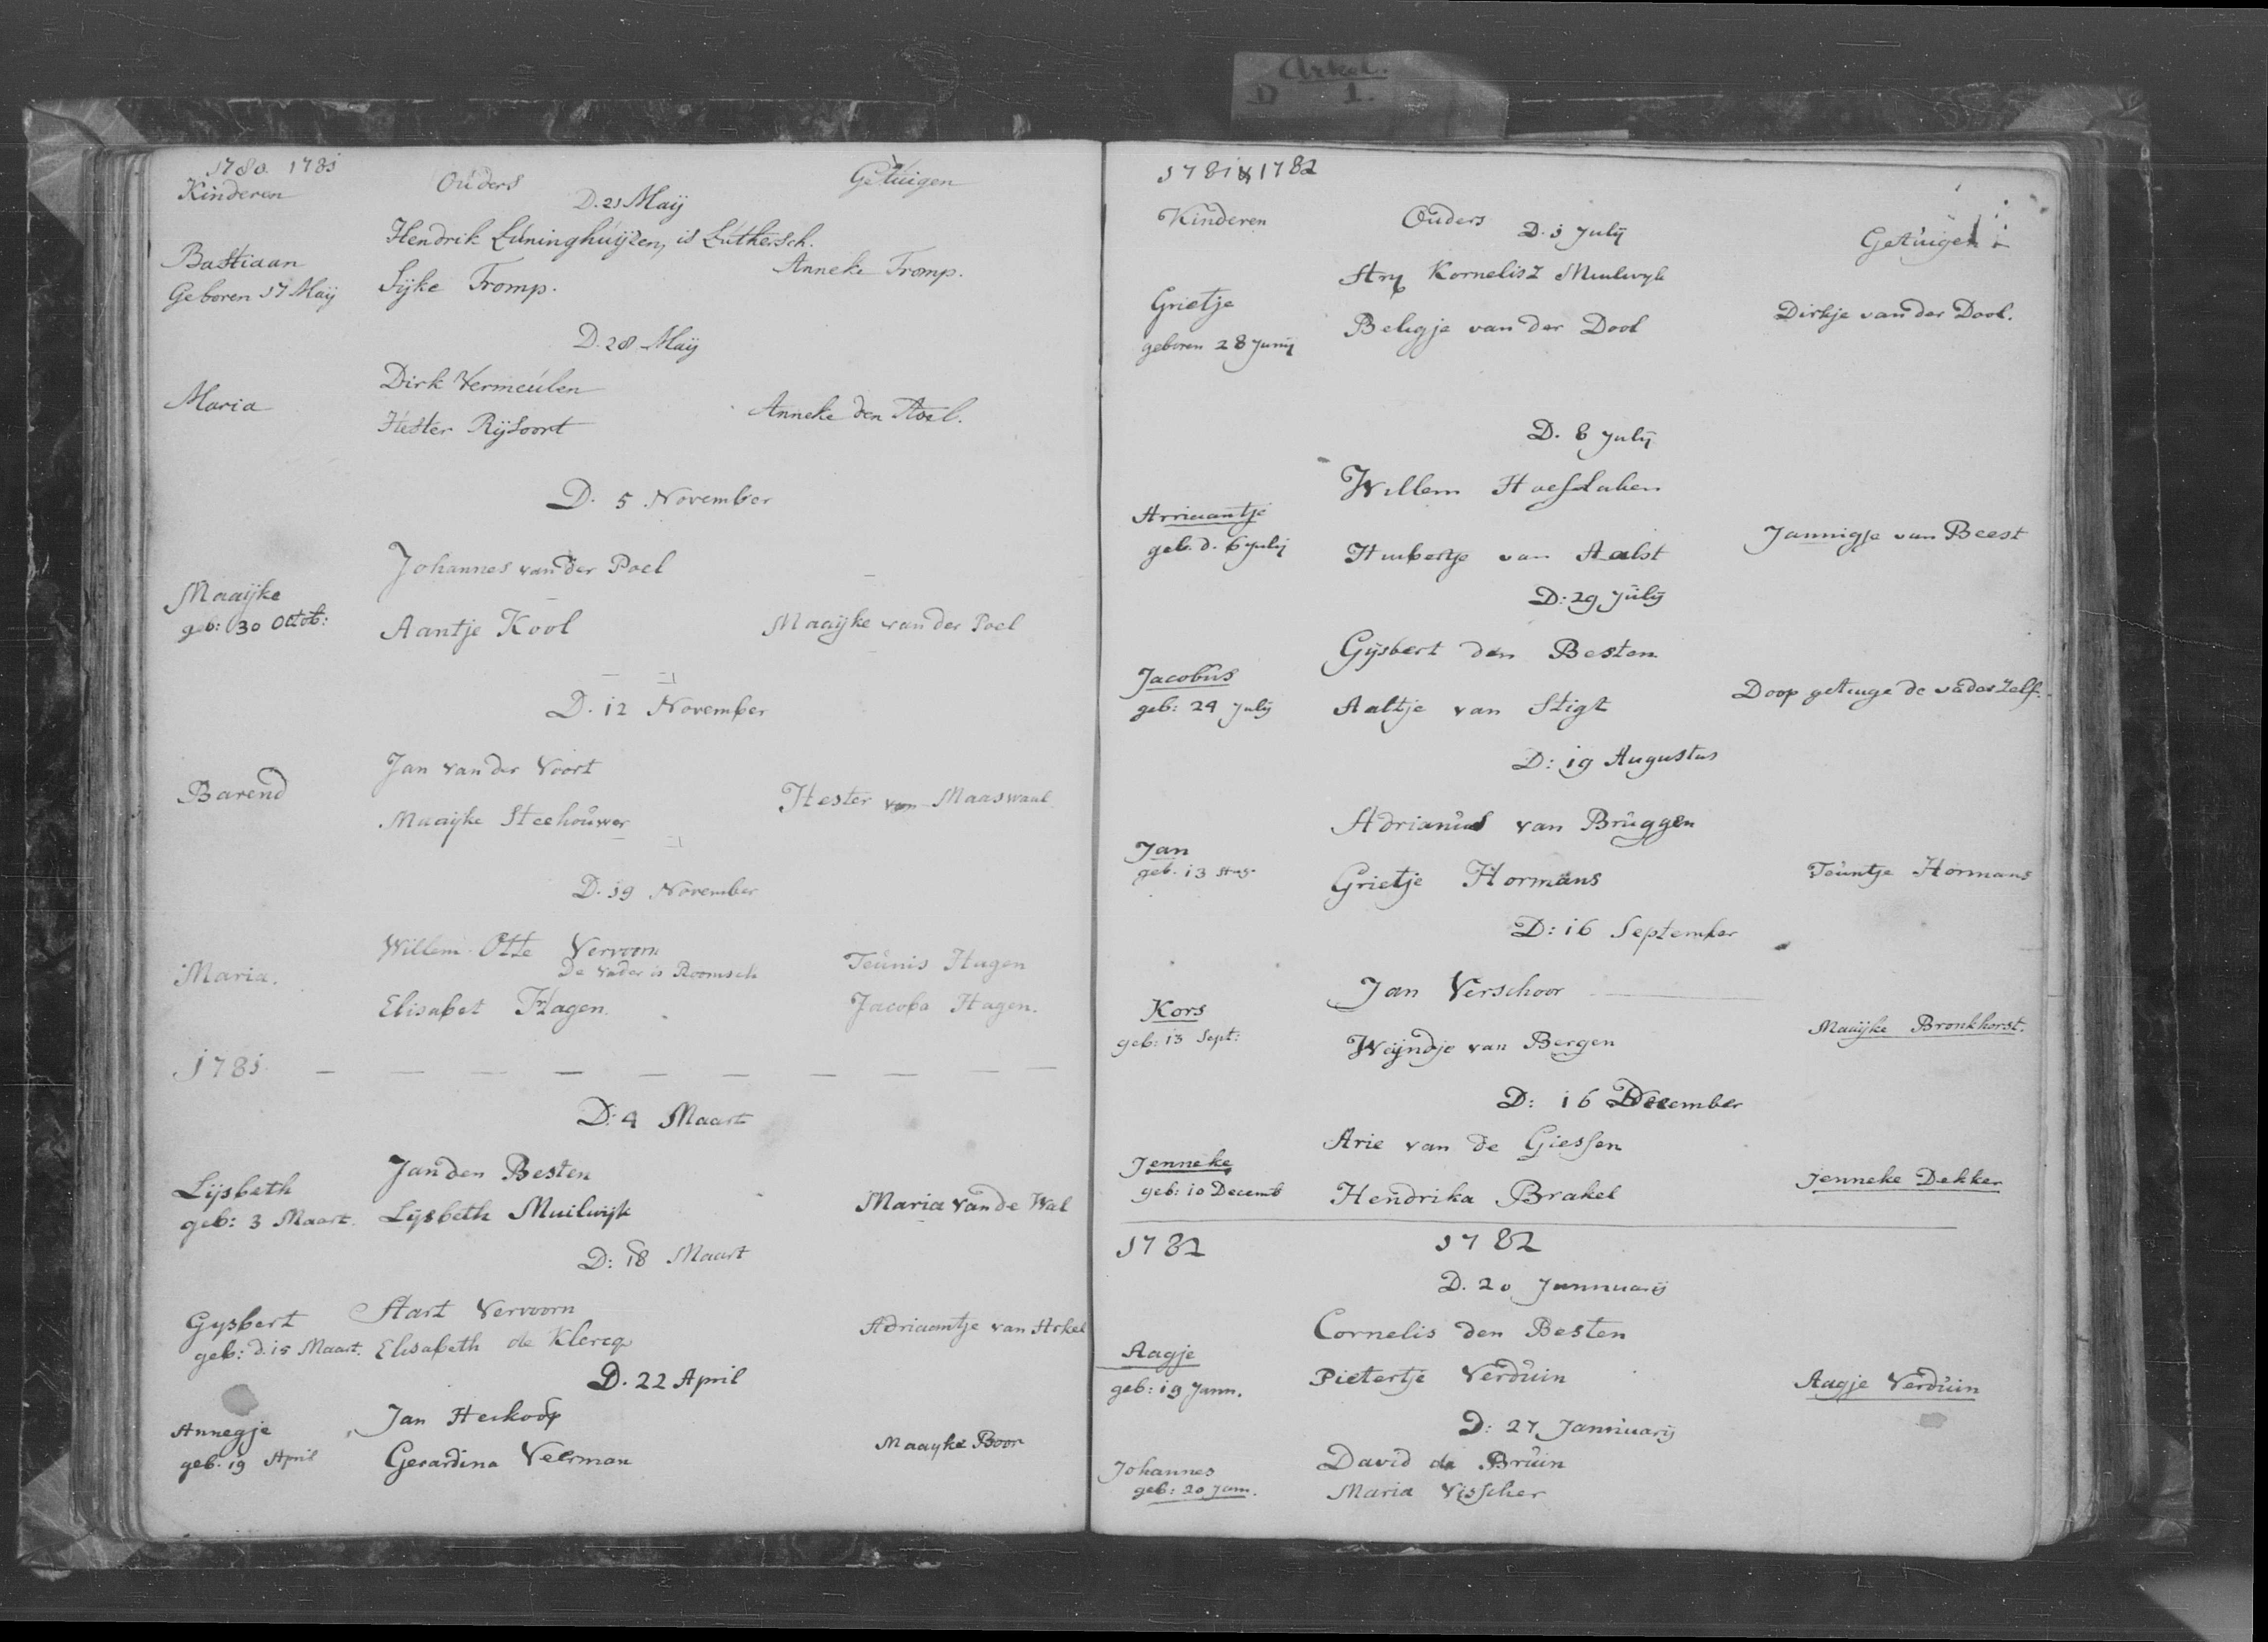 Arkel.
D 1.
1780. 1781
Kinderen Ouders Getuigen
D. 21 Maij
Hendrik Luninghuijzen, is Luthersch.
Bastiaan Anneke Tromp.
Geboren 17 Maij Sijke Tromp.
D. 28 Maij
Dirk Vermeulen
Maria Anneke den
Hester Rijsoort
D. 5 November
Johannes van der Poel
Maaijke
geb: 30 Octob: Aantje Kool Maaijke van der Poel
D. 12 November
Jan van der Voort
Barend Hester van Maaswaal
Maaijke Steehouwer
D. 19 November
Willem Otte Vervoorn
De Vader is Roomsch Teunis Hagen
Maria.
Elisabet Hagen. Jacoba Hagen.
1781.
D. 4 Maart
Jan den Besten
Lijsbeth
geb: 3 Maart. Lijsbeth Muilwijk Maria van de Wal
D: 18 Maart
Aart Vervoorn
Gysbert Adriaantje van Arkel
geb: d. 15 Maart. Elisabeth de Klercq
D. 22 April
Jan Herkoop
Annegje
geb. 19 April Gerardina Veerman Maayke Boor
1781 & 1782
Kinderen Ouders Getuigen
D. 1 Julij
Ary Kornelisz Muilwyk
Grietje Dirkje van der Dool.
geboren 28 Junij Beligje van der Dool
D. 8 Julij
Willem Hoeflaken
Arriaantje
geb. d. 6 Julij Huibertje van Aalst Jannigje van Beest
D: 29 Julij
Gijsbert den Besten
Jacobus
geb: 24 July Aaltje van Stigt Doop getuige de vader zelf.
D: 19 Augustus
Adrianus van Bruggen
Jan
geb. 13 Aug. Grietje Hormans Teuntje Hormans
D: 16 September
Jan Verschoor
Kors
geb: 13 Sept: Weijndje van Bergen Maaijke Bronkhorst.
D: 16 December
Arie van de Giessen
Jenneke
geb: 10 Decemb Hendrika Brakel Jenneke Dekker
1782 1782
D. 20 Jannuarij
Cornelis den Besten
Aagje
geb: 19 Jann. Pietertje Verduin Aagje Verduin
D: 27 Jannuarij
David de Bruin
Johannes
geb: 20 Jann. Maria Visscher